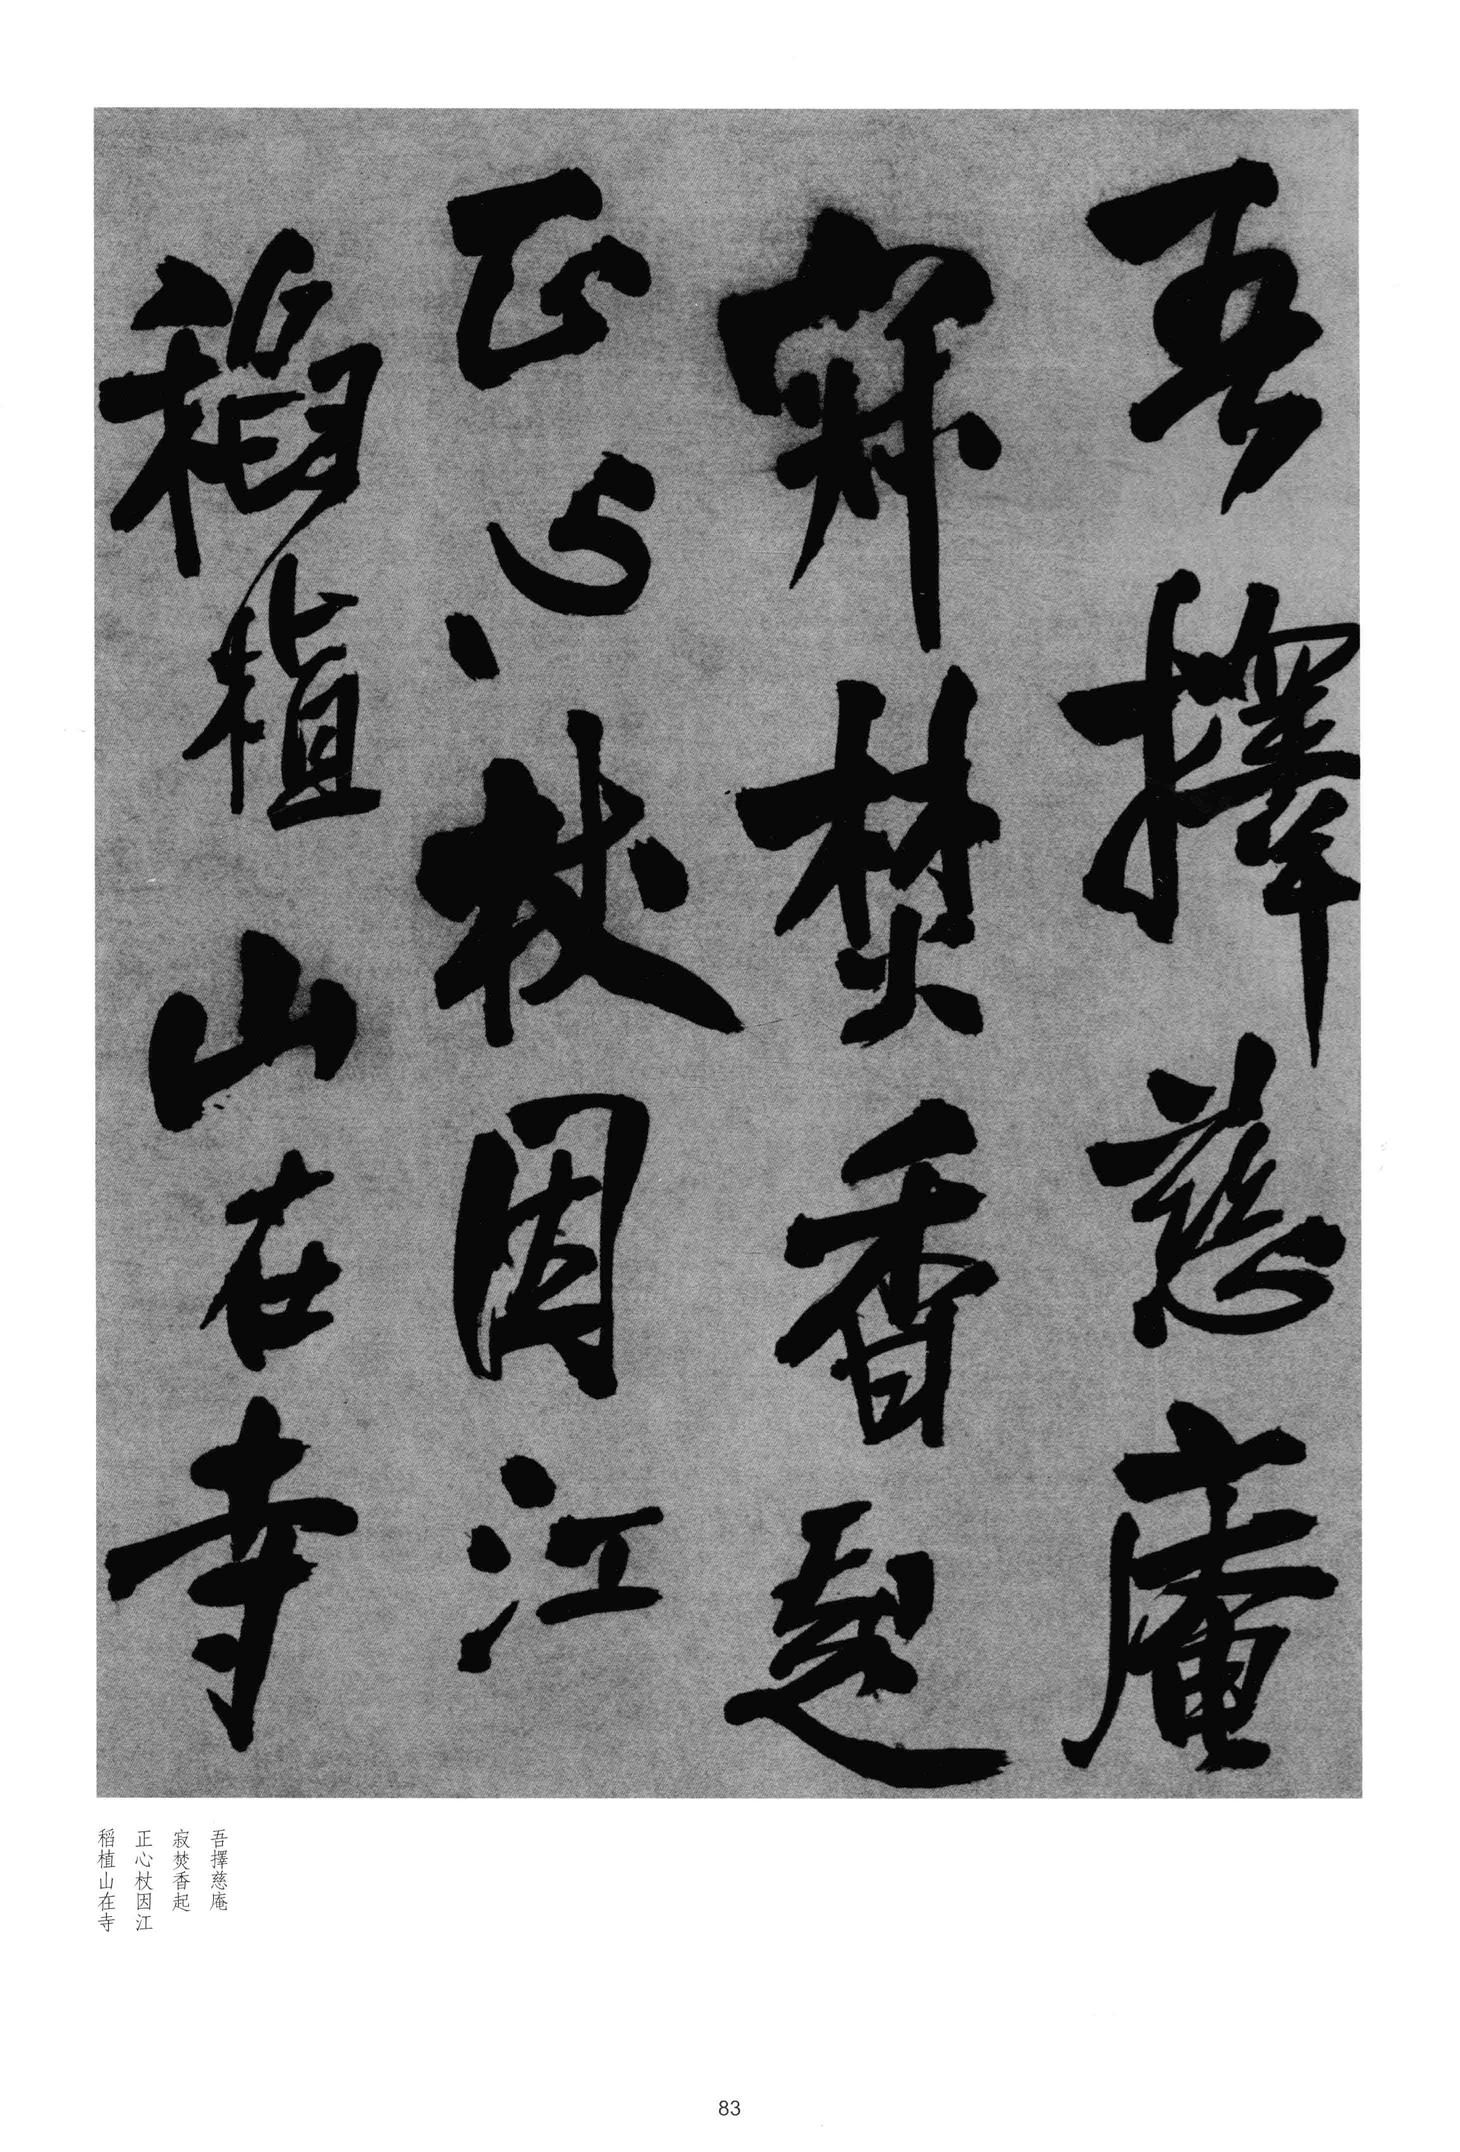 吾擇慈庵
寂焚香起
正心杖因江
稻植山在寺
吾擇慈庵
寂焚香起
正心杖因江
稻植山在寺
83